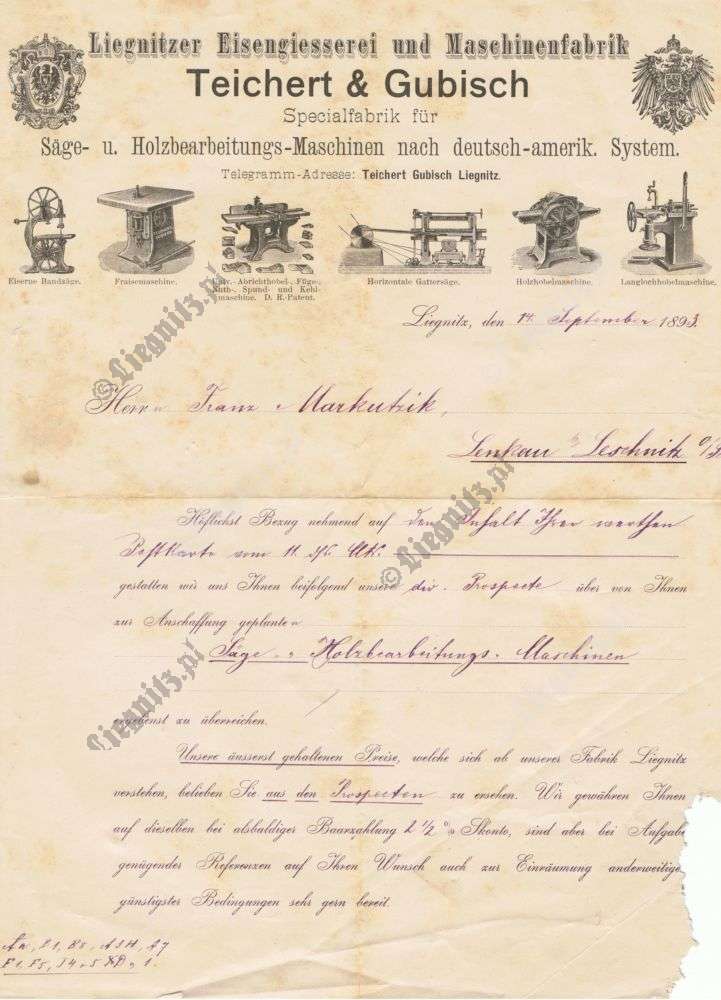 Liegnitzer Eisengiesserei und Maschinenfabrik
Teichert & Gubisch
Specialfabrik für
Säge- u. Holzbearbeitungs-Maschinen nach deutsch-amerik. System.
Telegramm-Adresse: Teichert Gubisch Liegnitz.
Eiserne Bandsäge.
Fraisemaschine.
Univ.-Abrichthobel-, Füge-,
Nuth-, Spund- und Kehl-
maschine. D. R.-Patent.
Horizontale Gattersäge.
Holzhobelmaschine.
Langlochhobelmaschine.
Liegnitz, den 14. September 1893.
Herrn Franz Markutzik,
Lenkau b/ Leschnitz O/S.
Höflichst Bezug nehmend auf den Inhalt Ihrer werthen
Postkarte vom 11.
gestatten wir uns Ihnen beifolgend unsere div. Prospecte über von Ihnen
zur Anschaffung geplante
Säge- u Holzbearbeitungs-Maschinen
ergebenst zu überreichen.
Unsere äusserst gehaltenen Preise, welche sich ab unserer Fabrik Liegnitz
verstehen, belieben Sie aus den Prospecten zu ersehen. Wir gewähren Ihnen
auf dieselben bei alsbaldiger Baarzahlung 2 1/2 % Skonto, sind aber bei Aufgabe
genügender Referenzen auf Ihren Wunsch auch zur Einräumung anderweitige
günstigster Bedingungen sehr gern bereit.
©Liegnitz.pl
©Liegnitz.pl
Liegnitz.pl